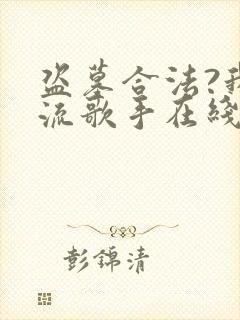 盗墓合法?我
流歌手在线
彭锦清